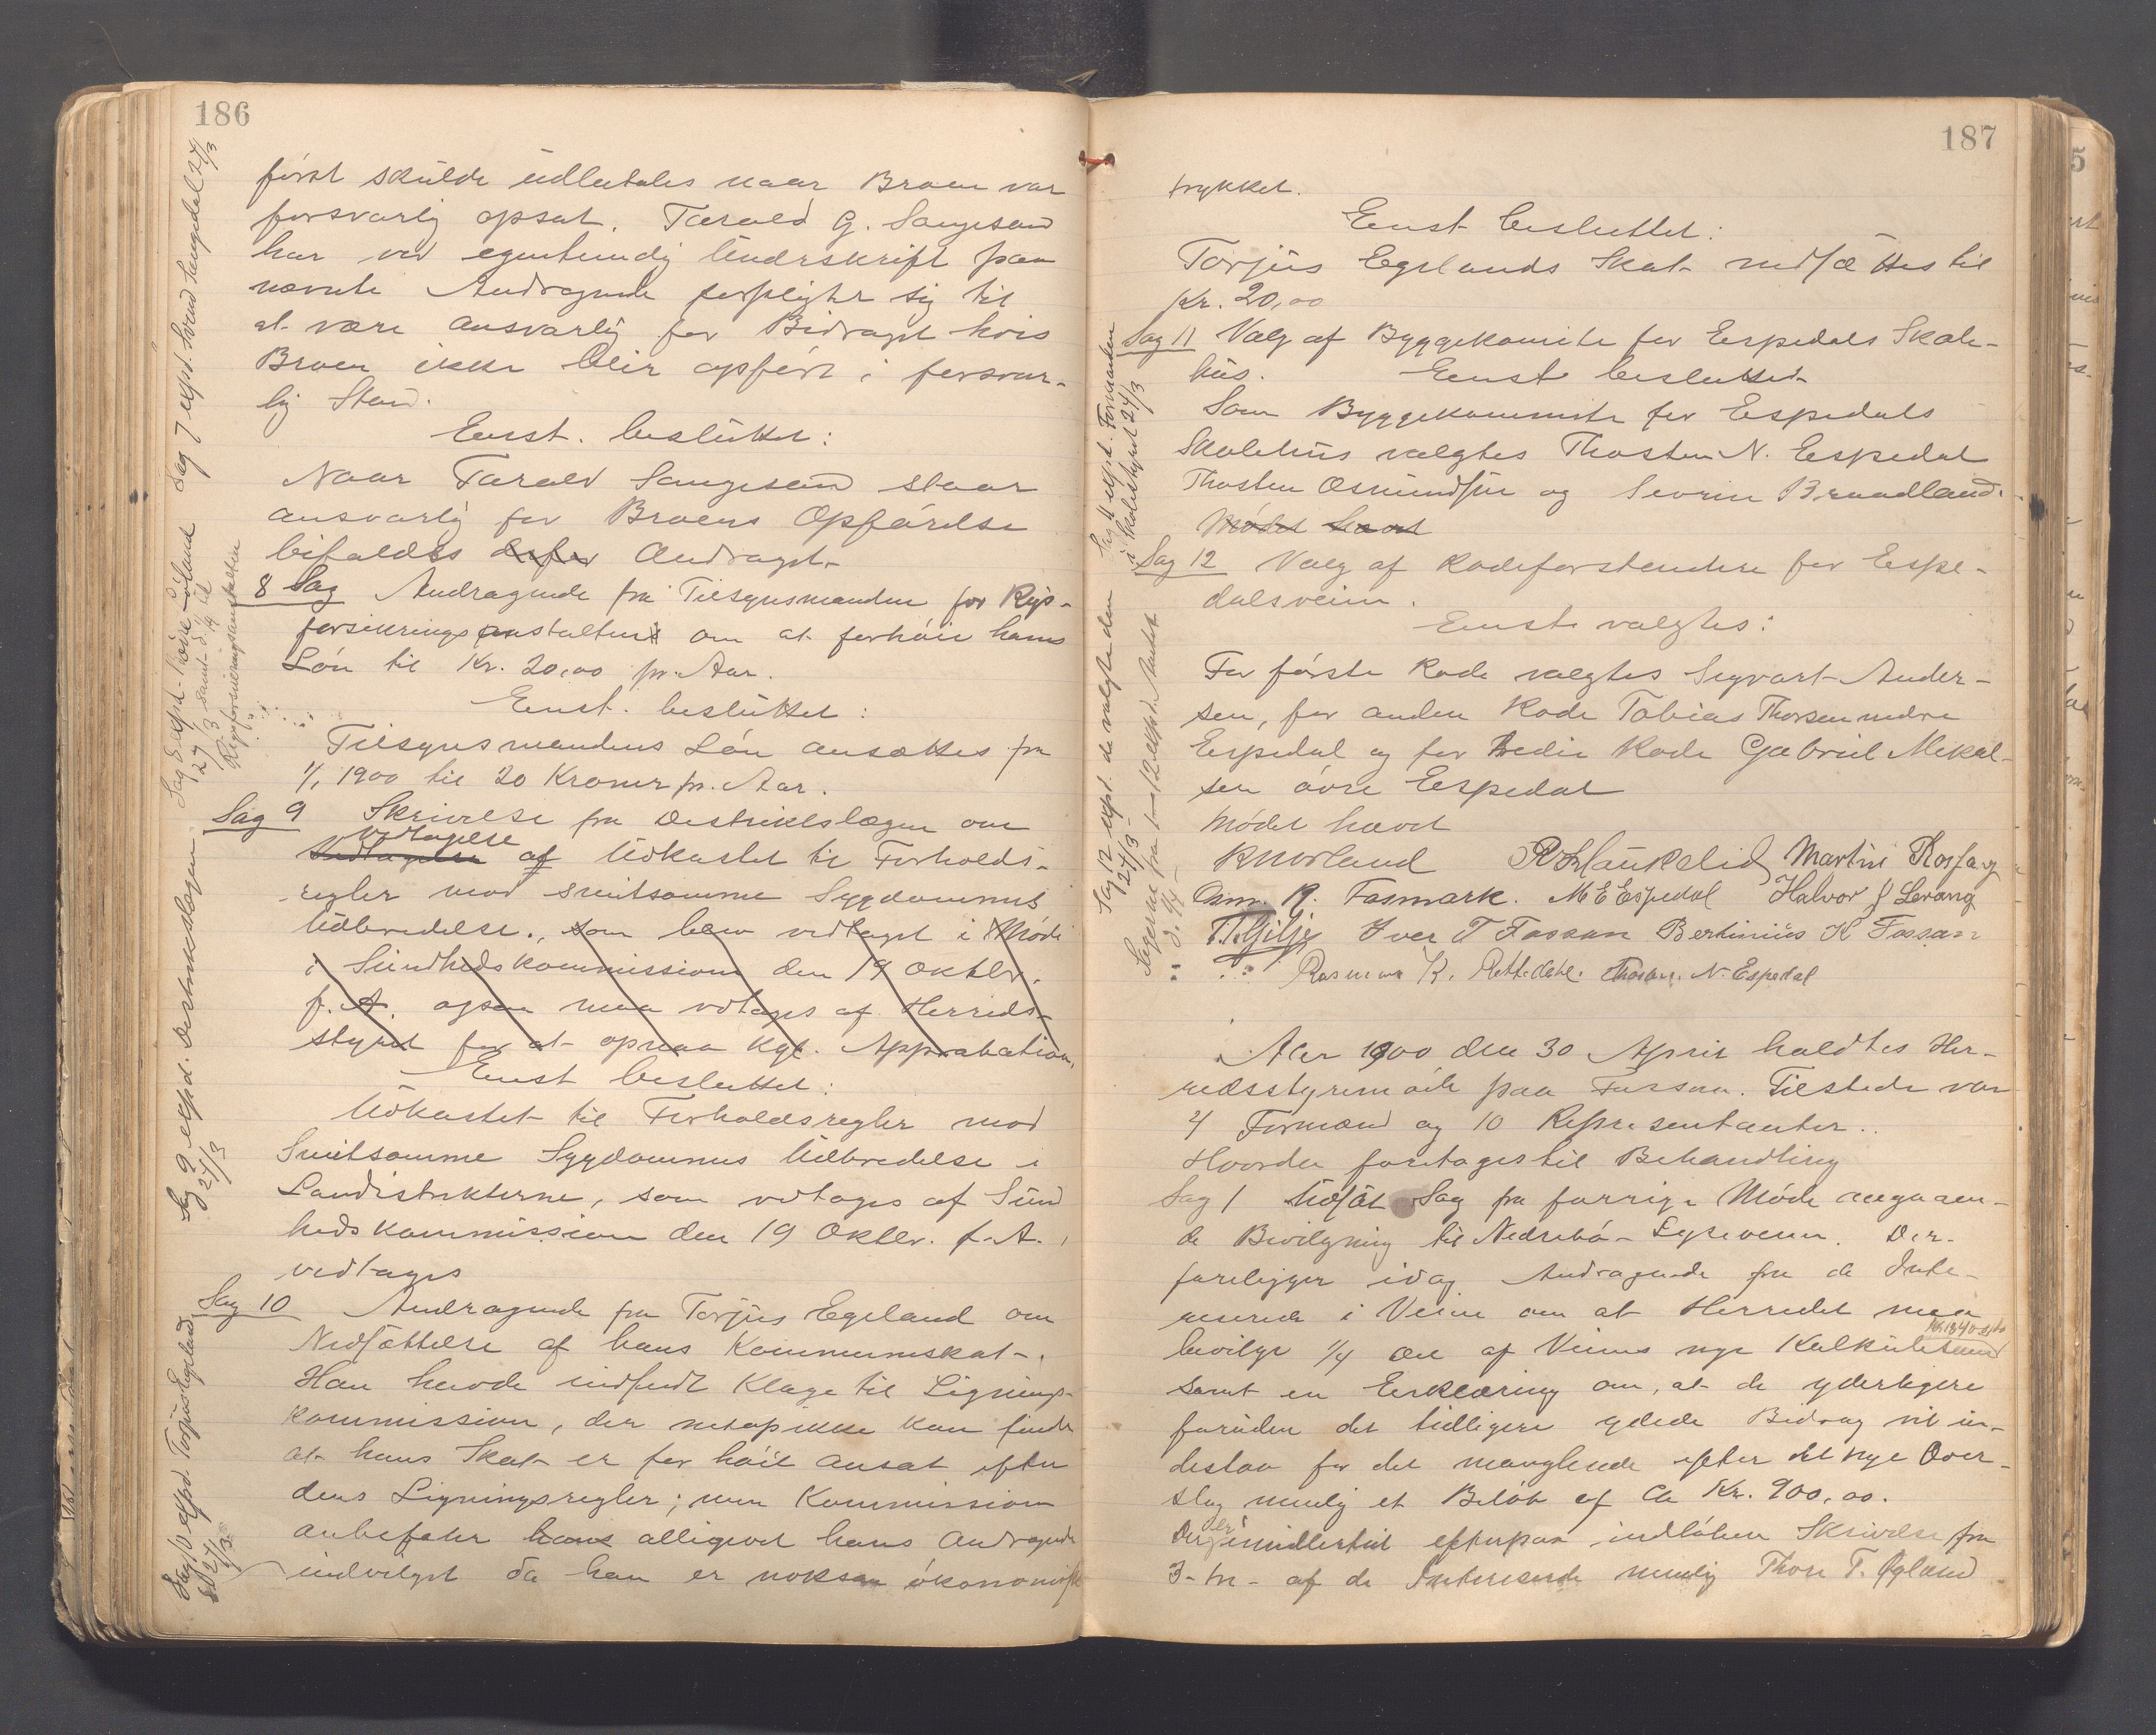 186
først skulde udbetales naar Broen var
forsvarlig opsat. Tarald G. Saugesand
har ved egenhændig Underskrift paa
nævnte Andragende forpligtet sig til
at være ansvarlig for Bidraget hvis
Broen ikke blir opført i forsvar-
lig Stand.
Enst. besluttet:
Naar Tarald Saugesand staar
ansvarlig for Broens Opførelse
bifaldes Andraget.
8 Sag Andragende fra Tilsynsmanden for Rigs-
forsikringsanstalten om at forhøie hans
Løn til Kr. 20,00 pr. Aar.
Enst. besluttet:
Tilsynsmandens Løn ansættes fra
1/1 1900 til 20 Kroner pr. Aar.
Sag 9 Skrivelse fra Distriktslægen om
vedtagelse
af Udkastet til Forholds-
regler mod smitsomme Sygdommes
Udbredelse., som blev vedtaget i Møde
i Sundhedskommissionen den 19 Oktbr.
f. A. ogsaa maa vedtages af Herreds-
styret for at opnaa Kgl. Approbation.
Enst besluttet:
Udkastet til Forholdsregler mod
Smitsomme Sygdommes Udbredelse i
Landistrikterne, som vedtages af Sund
hedskommission den 19 Oktbr. f. A.,
vedtages
Sag 10 Andragende fra Torjus Egeland om
Nedsættelse af hans Kommuneskat.
Han havde indsendt Klage til Lignings-
kommission, der netop ikke kan finde
at hans Skat er for høit ansat efter
dens Ligningsregler; men Kommission
anbefaler hans alligevel hans Andragende
indvilget da han er noksaa økonomisk
Sag 7 expd. Svend Saugedal 27/3
27/3 samt d. 19 til
Rigsforsikringsanstalten
Sag 9 expd. Distriktslægen
27/3
Sag 10 expd. Torjus Egeland
27/3
187
trykket.
Enst besluttet:
Torjus Egelands Skat nedsættes til
Kr. 20,00
Sag 11 Valg af Byggekomite for Espedals Skole-
hus. Enst besluttet
Som Byggekommite for Espedals
Skolehus valgtes Thosten N. Espedal
Thosten Osmundsen og Sevrin Braadland.
Mødet hævet
Sag 12 Valg af Rodeforstandere for Espe-
dalsveien.
Enst valgtes:
For første Rode valgtes Sigvart Ander-
sen, for anden Rode Tobias Thorsen nedre
Espedal og for tredie Rode Gabriel Mikal-
sen øvre Espedal
Mødet hævet
R Norland R Haukelid Martin Rossavg
Osm. R. Fosmark. M E Espedal Halvor J Levang
T. T. Gilje Iver T Fossan Bertinius K Fossan
Rasmus K. Rettedahl. Thosten N. Espedal
Aar 1900 den 30 April holdtes Her-
redsstyremøde paa Fossan. Tilstede var
4 Formænd og 10 Repræsentanter.
Hvorda foretages til Behandling
Sag 1 Udsat Sag fra forrige Møde angaaen-
de Bevilgning til Nedrebø-Lyseveien. Der
foreligger idag Andragende fra de Inte-
reserede i Veien om at Herredet maa
Kr. 1840
bevilge 1/4 Del af Veiens nye Kalkulesum
samt en Erklæring om, at de yderligere
foruden det tidligere ydede Bidrag vil in-
destaa for det manglende efter det nye Over-
slag nemlig et Beløb af Ca Kr. 900,00.
er
Der imidlertid efterpaa indløben Skrivelse fra
3-tre- af de Intereserede nemlig Thore T. Øgland
Sag 11 expd. Formanden
i Skolestyret 27/3
Sag 12 expd. de valgte den
27/3